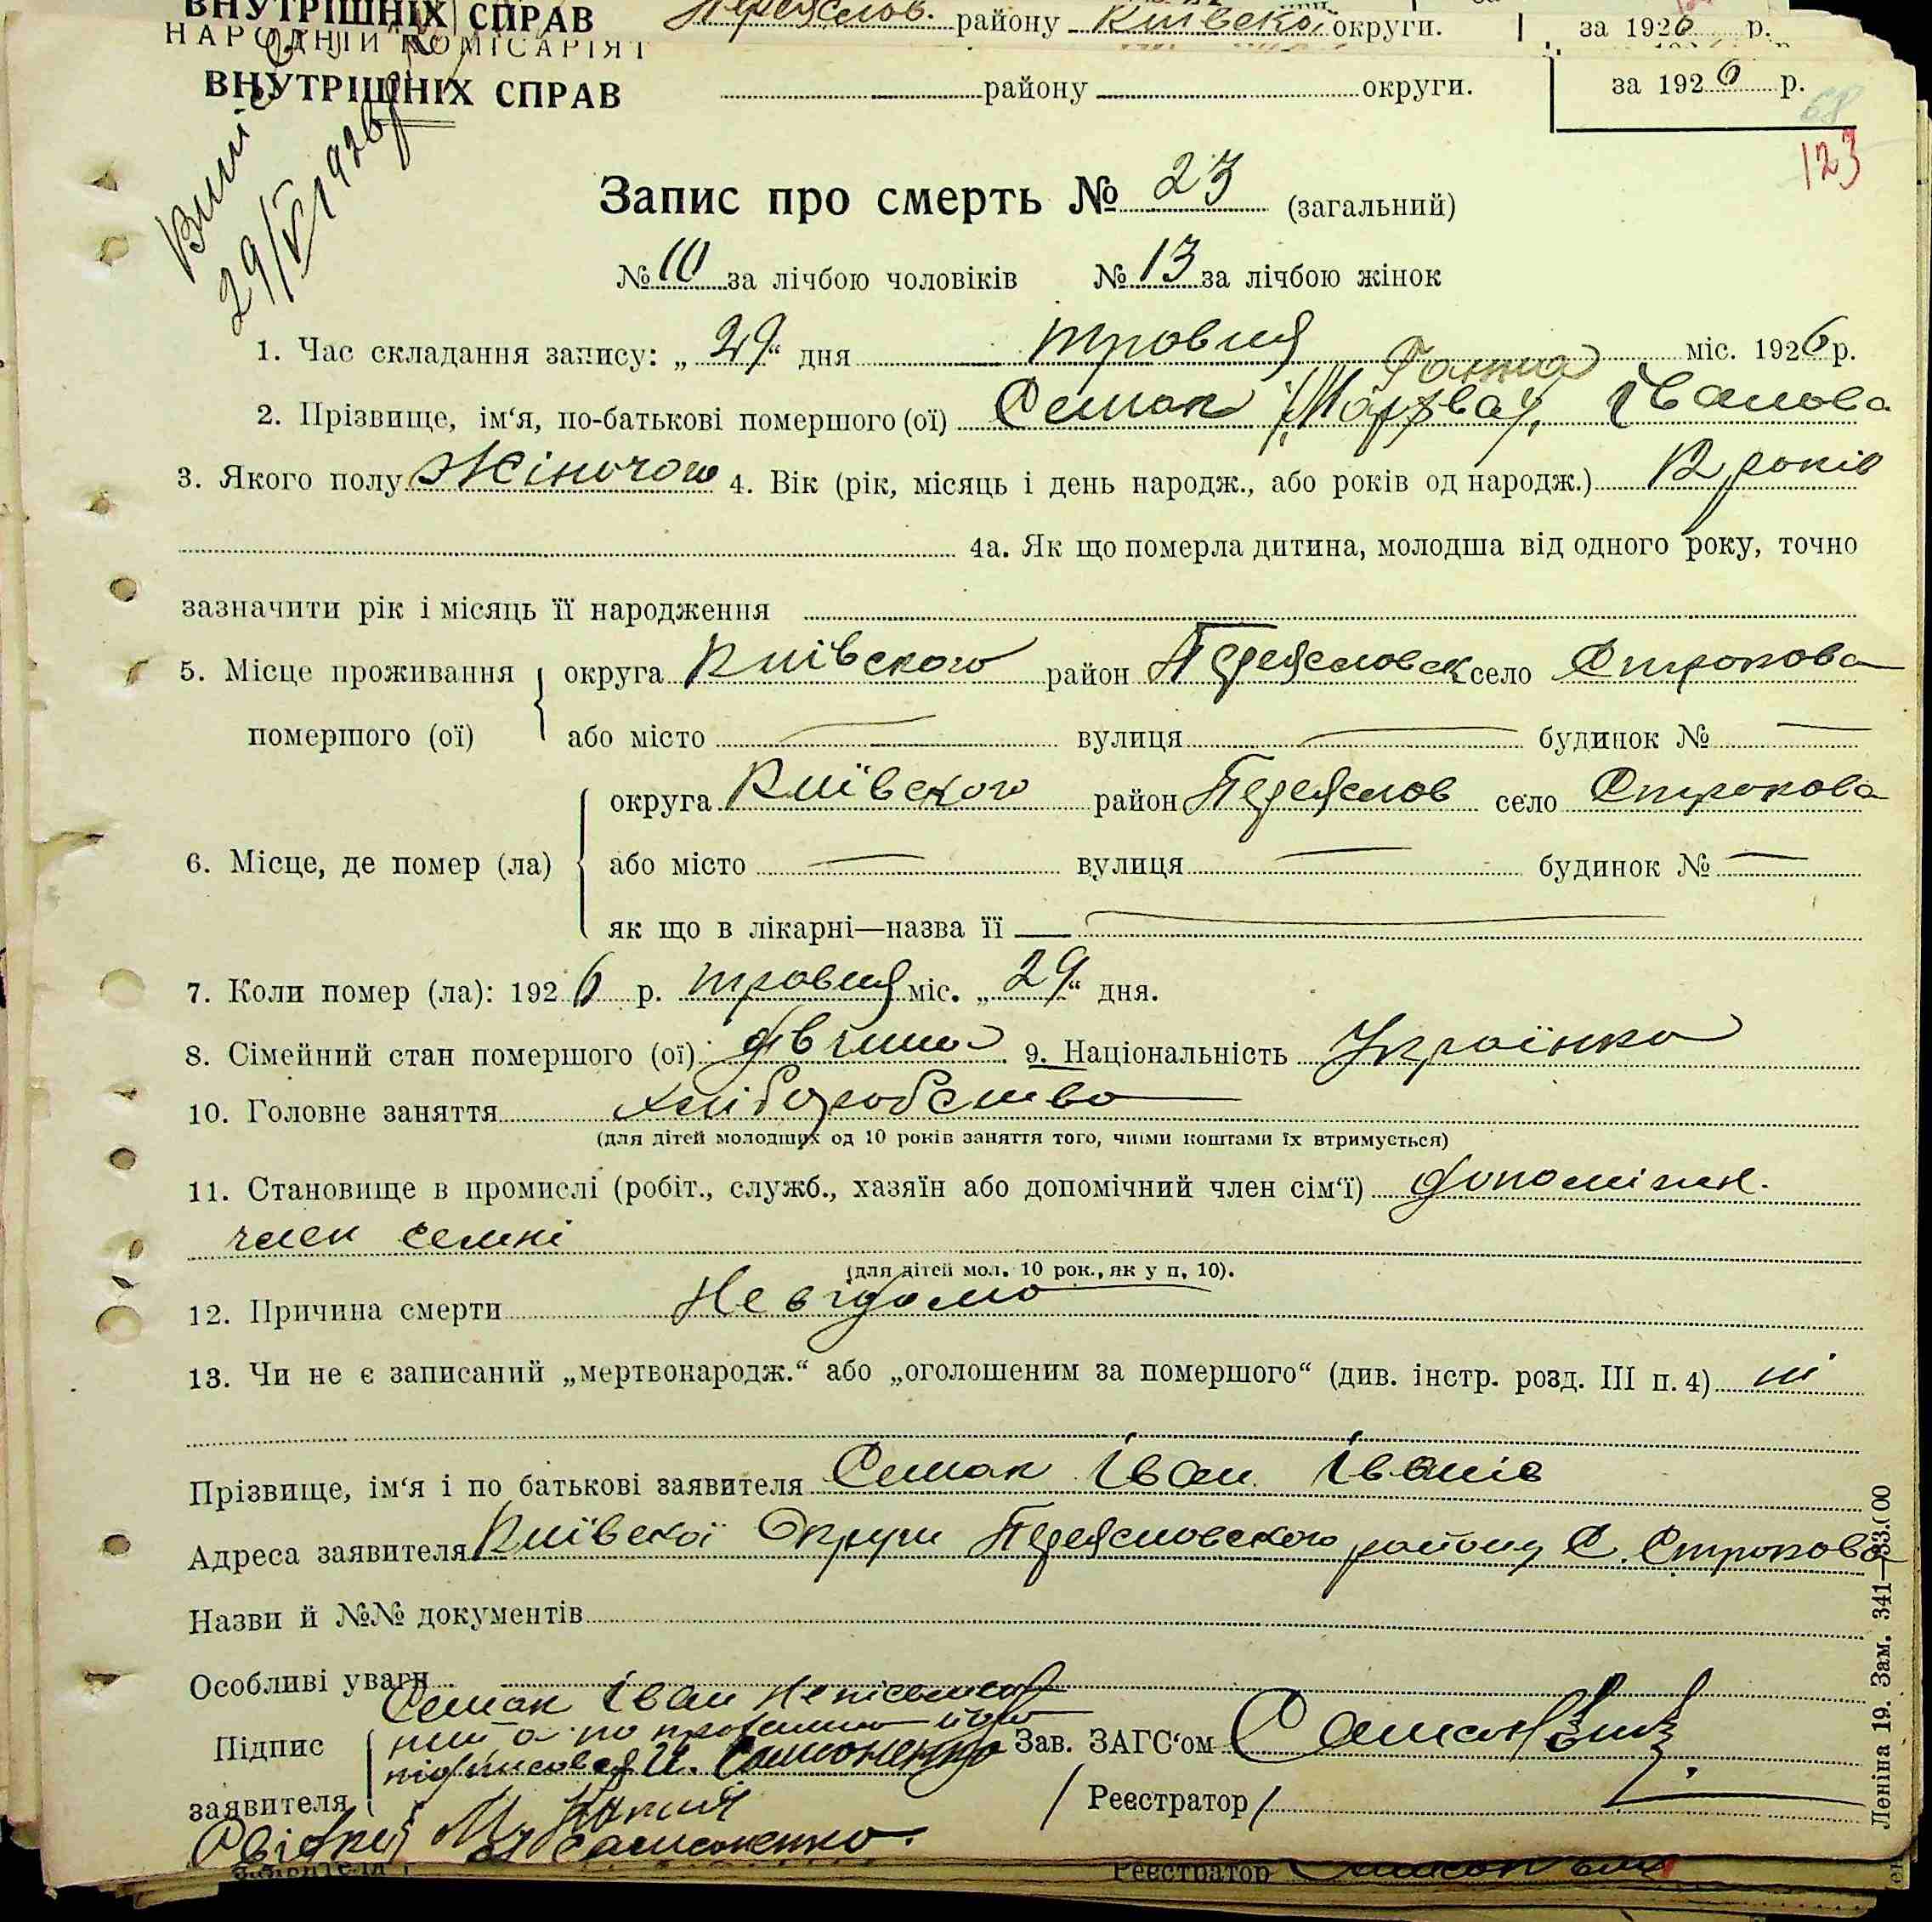 ВНУТРІШНІХ СПРАВ Переяслов. району Київскої округи. за 1926 р.
НАРОДНІЙ КОМІСАРІЯТ
ВНУТРІШНІХ СПРАВ району округи. за 1926 р.
68
123
29/V 1926 р
Запис про смерть № 23 (загальний)
№ 10 за лічбою чоловіків № 13 за лічбою жінок
1. Час складання запису: „29“ дня травня міс. 1926 р.
Ганна
2. Прізвище, ім‘я, по-батькові помершого (ої) Семак Іванова
3. Якого полу Жіночого 4. Вік (рік, місяць і день народж., або років од народж.) 12 років
4а. Як що померла дитина, молодша від одного року, точно
зазначити рік і місяць її народження
5. Місце проживання округа Київского район Переясловск село Строкова
помершого (ої) або місто — вулиця — будинок № —
округа Київского район Переяслов село Строкова
6. Місце, де помер (ла) або місто — вулиця — будинок № —
як що в лікарні—назва її —
7. Коли помер (ла): 1926 р. травня міс. „29“ дня.
8. Сімейний стан помершого (ої): дівчина 9. Національність Українка
10. Головне заняття хліборобство
(для дітей молодших од 10 років заняття того, чиїми коштами їх втримується)
11. Становище в промислі (робіт., служб., хазяїн або допомічний член сім‘ї) допомічн.
член семні
(для дітей мол. 10 рок., як у п. 10).
12. Причина смерти Невідомо
13. Чи не є записаний „мертвонародж.“ або „оголошеним за помершого“ (див. інстр. розд. III п. 4) ні
Прізвище, ім‘я і по батькові заявителя Семак Іван Іванів
Адреса заявителя Київскої Округи Переясловского району С. Строкова
Назви й №№ документів
Особливі уваги
Семак Іван неписьмен
Підпис ний а по проханню його
підписався И. Самоненко Зав. ЗАГС‘ом
заявителя / Реєстратор /
Свідки
Самоненко.
Реєстратор
Леніна 19. Зам. 341—33.000